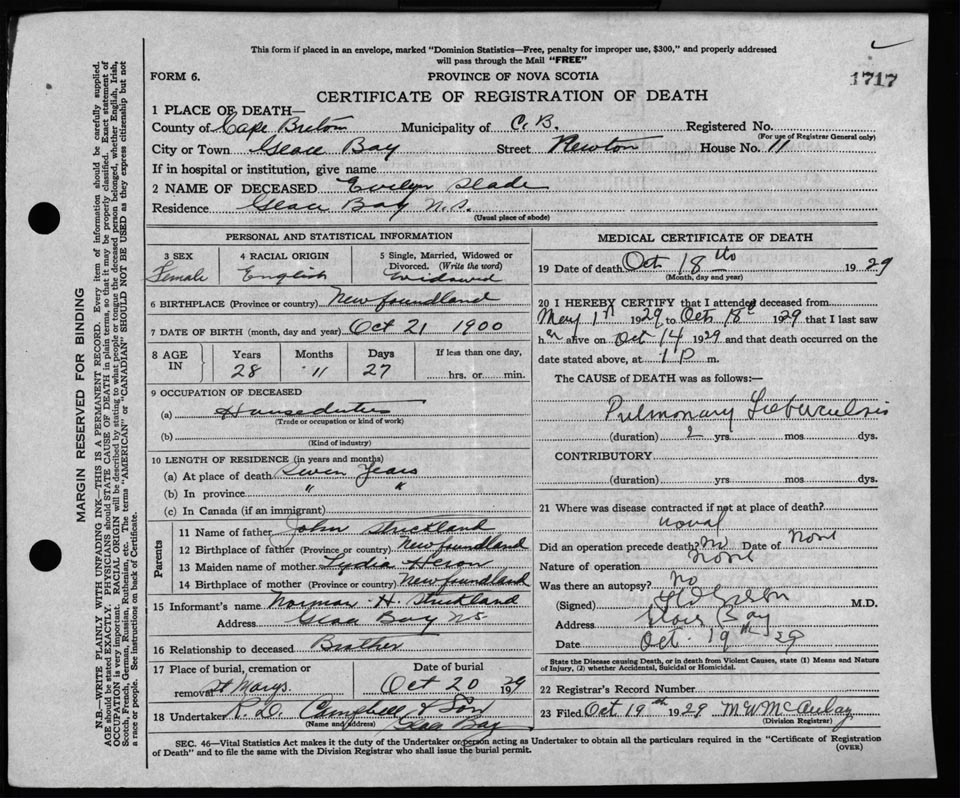 This form if placed in an envelope, marked "Dominion Statistics—Free, penalty for improper use, $300," and properly addressed
will pass through the Mail "FREE"
FORM 6.
PROVINCE OF NOVA SCOTIA
1717
CERTIFICATE OF REGISTRATION OF DEATH
1 PLACE OF DEATH—
County of Cape Breton Municipality of C.B. Registered No.
(For use of Registrar General only)
City or Town Glace Bay Street Newton House No. 11
If in hospital or institution, give name
2 NAME OF DECEASED Evelyn Slade
Residence Glace Bay N.S.
(Usual place of abode)
PERSONAL AND STATISTICAL INFORMATION
3 SEX Female
4 RACIAL ORIGIN English
5 Single, Married, Widowed or
Divorced. (Write the word)
Widowed
6 BIRTHPLACE (Province or country) Newfoundland
7 DATE OF BIRTH (month, day and year) Oct 21 1900
8 AGE IN
Years Months Days If less than one day,
28 11 27 hrs. or min.
9 OCCUPATION OF DECEASED
(a) Houseduties
(Trade or occupation or kind of work)
(b)
(Kind of industry)
10 LENGTH OF RESIDENCE (in years and months)
(a) At place of death Seven Years
(b) In province " "
(c) In Canada (if an immigrant)
Parents
11 Name of father John Strickland
12 Birthplace of father (Province or country) Newfoundland
13 Maiden name of mother Lydia
14 Birthplace of mother (Province or country) Newfoundland
15 Informant's name Norman H. Strickland
Address Glace Bay NS
16 Relationship to deceased Brother
17 Place of burial, cremation or Date of burial
removal St Marys. Oct 20 1929
18 Undertaker R. D. Campbell & Son
(Name and address) Glace Bay
MEDICAL CERTIFICATE OF DEATH
19 Date of death Oct 18th 1929
(Month, day and year)
20 I HEREBY CERTIFY that I attended deceased from
May 1st 1929 to Oct 18th 1929 that I last saw
her alive on Oct 14 1929 and that death occurred on the
date stated above, at 1 P m.
The CAUSE of DEATH was as follows:—
Pulmonary Tuberculosis
(duration) 2 yrs. mos. dys.
CONTRIBUTORY
(duration) yrs. mos. dys.
21 Where was disease contracted if not at place of death?
Did an operation precede death? No Date of None
Nature of operation None
Was there an autopsy? No
(Signed) M.D.
Address Glace Bay
Date Oct. 19th 29
State the Disease causing Death, or in death from Violent Causes, state (1) Means and Nature
of Injury, (2) whether Accidental, Suicidal or Homicidal.
22 Registrar's Record Number
23 Filed Oct 19th 1929 M W McAulay
(Division Registrar)
SEC. 46—Vital Statistics Act makes it the duty of the Undertaker or person acting as Undertaker to obtain all the particulars required in the "Certificate of Registration
of Death" and to file the same with the Division Registrar who shall issue the burial permit.
(OVER)
MARGIN RESERVED FOR BINDING
N.B.—WRITE PLAINLY WITH UNFADING INK—THIS IS A PERMANENT RECORD. Every item of information should be carefully supplied.
AGE should be stated EXACTLY. PHYSICIANS should STATE CAUSE OF DEATH in plain terms, so that it may be properly classified. Exact statement of
OCCUPATION is very important. RACIAL ORIGIN will be described by stating to what people or tongue the deceased person belonged, whether English, Irish,
Scotch, French, German, Russian, Ruthenian, etc. The terms "AMERICAN" or "CANADIAN" SHOULD NOT BE USED as they express citizenship but not
a race or people. See instructions on back of Certificate.